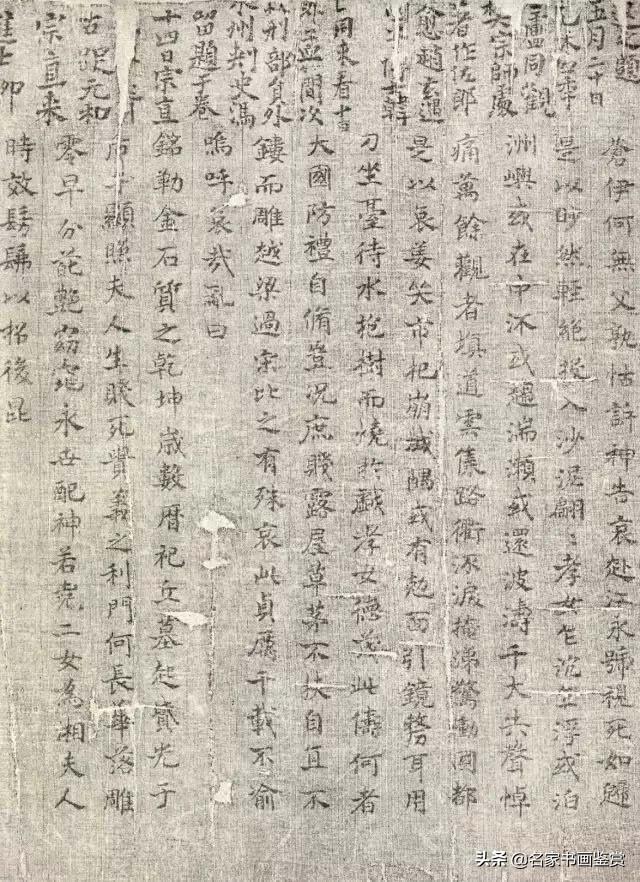 五月二十日
盧同觀
樊宗師處
著作佐郎
愈趙玄遇
韓
同來看
間次
刑部員外
永州刺史馮
留題于卷
十四日宗直
元和
宗直來
蒼伊何無父孰怙訴神告哀赴江永號視死如歸
是以眇然輕絕投入沙泥翩〻孝女乍沉乍浮或泊
洲嶼或在中流或趨湍瀨或還波濤千夫失聲悼
痛萬餘觀者填道雲集路衢流淚掩涕驚動國都
是以哀姜哭市杞崩城隅或有尅面引鏡剺耳用
刀坐臺待水抱樹而燒於戲孝女德茂此儔何者
大國防禮自脩豈況庶賤露屋草茅不扶自直不
鏤而雕越梁過宋比之有殊哀此貞厲千載不渝
嗚呼哀哉亂曰
銘勒金石質之乾坤歲數曆祀丘墓起墳光于
后土顯照夫人生賤死貴義之利門何長華落雕
零早分葩艷窈窕永世配神若堯二女為湘夫人
時效髣髴以招後昆
头条 @名家书画鉴赏